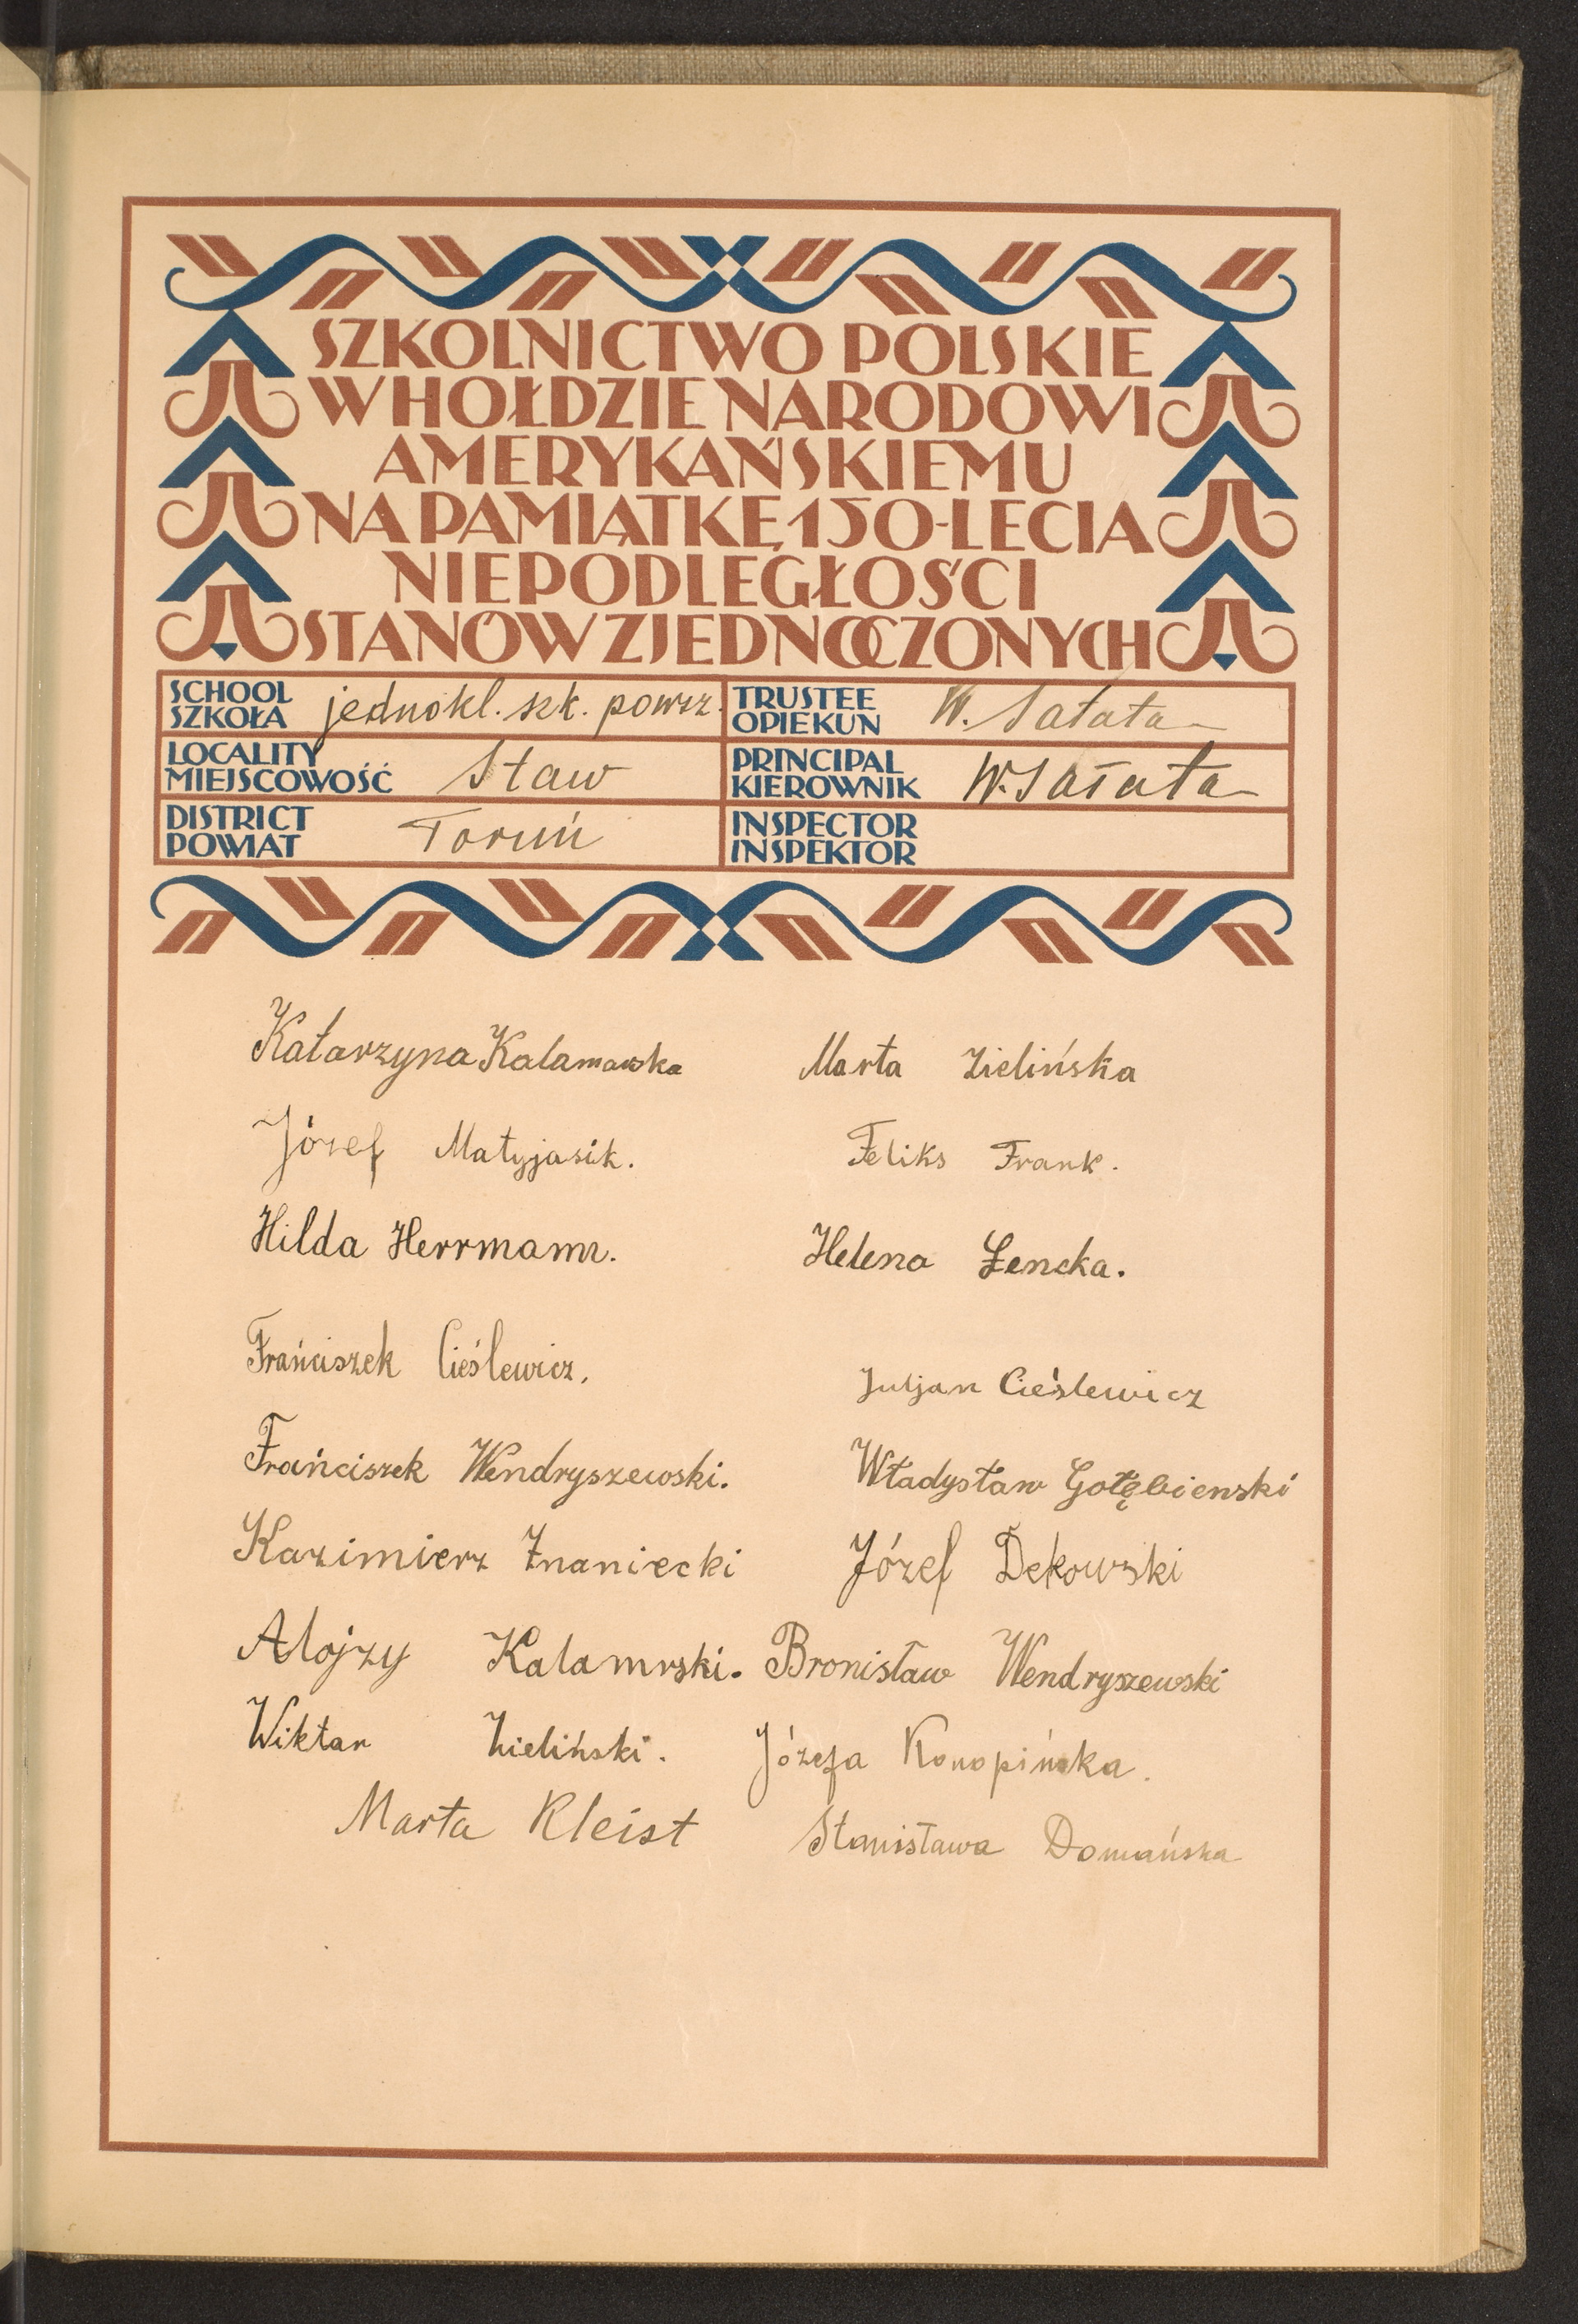 SZKOLNICTWO POLSKIE
W HOŁDZIE NARODOWI
AMERYKAŃSKIEMU
NA PAMIĄTKĘ 150-LECIA
NIEPODLEGŁOŚCI
STANÓW ZJEDNOCZONYCH
SCHOOL
SZKOŁA jednokl. szk. powsz.
TRUSTEE
OPIEKUN W. Sałata
LOCALITY
MIEJSCOWOŚĆ Staw
PRINCIPAL
KIEROWNIK W. Sałata
DISTRICT
POWIAT Toruń
INSPECTOR
INSPEKTOR
Katarzyna Kalamawska
Marta Zielińska
Józef Matyjasik.
Feliks Frank.
Hilda Herrmann.
Helena Łencka.
Frańciszek Cieślewicz.
Juljan Cieślewicz
Frańciszek Wendryszewski.
Władysław Gołębienski
Kazimierz Znaniecki
Józef Dekowski
Alojzy Kalamrski.
Bronisław Wendryszewski
Wiktor Zieliński.
Józefa Konopińska.
Marta Kleist
Stanisława Domańska